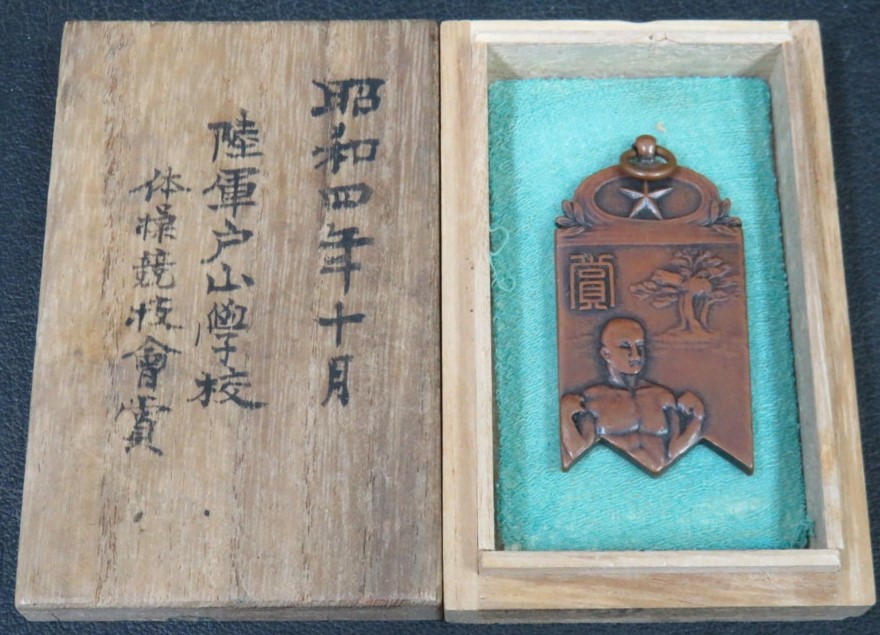 昭和四年十月
陸軍戸山學校
体操競技會賞
賞